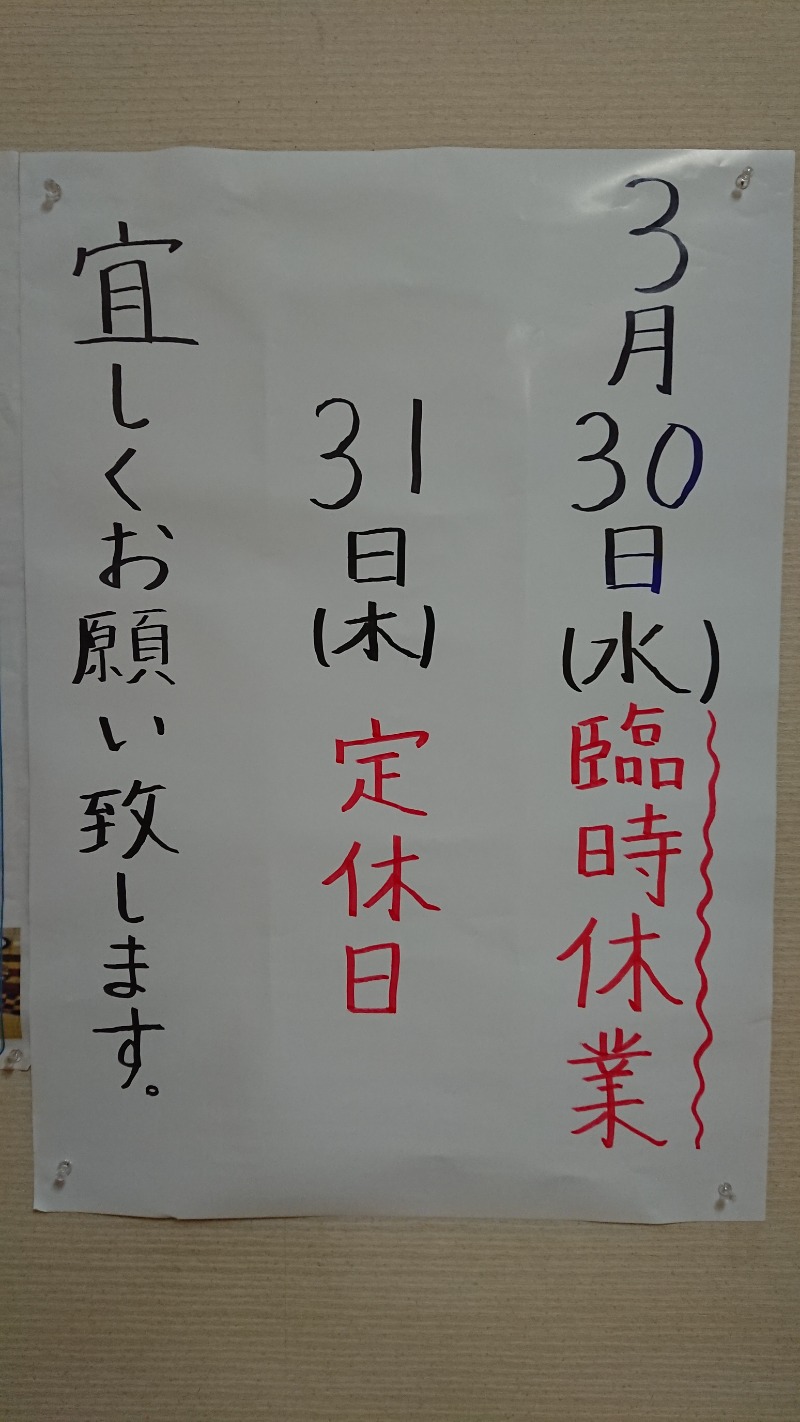 3月30日(水)臨時休業
31日(木)定休日
宜しくお願い致します。